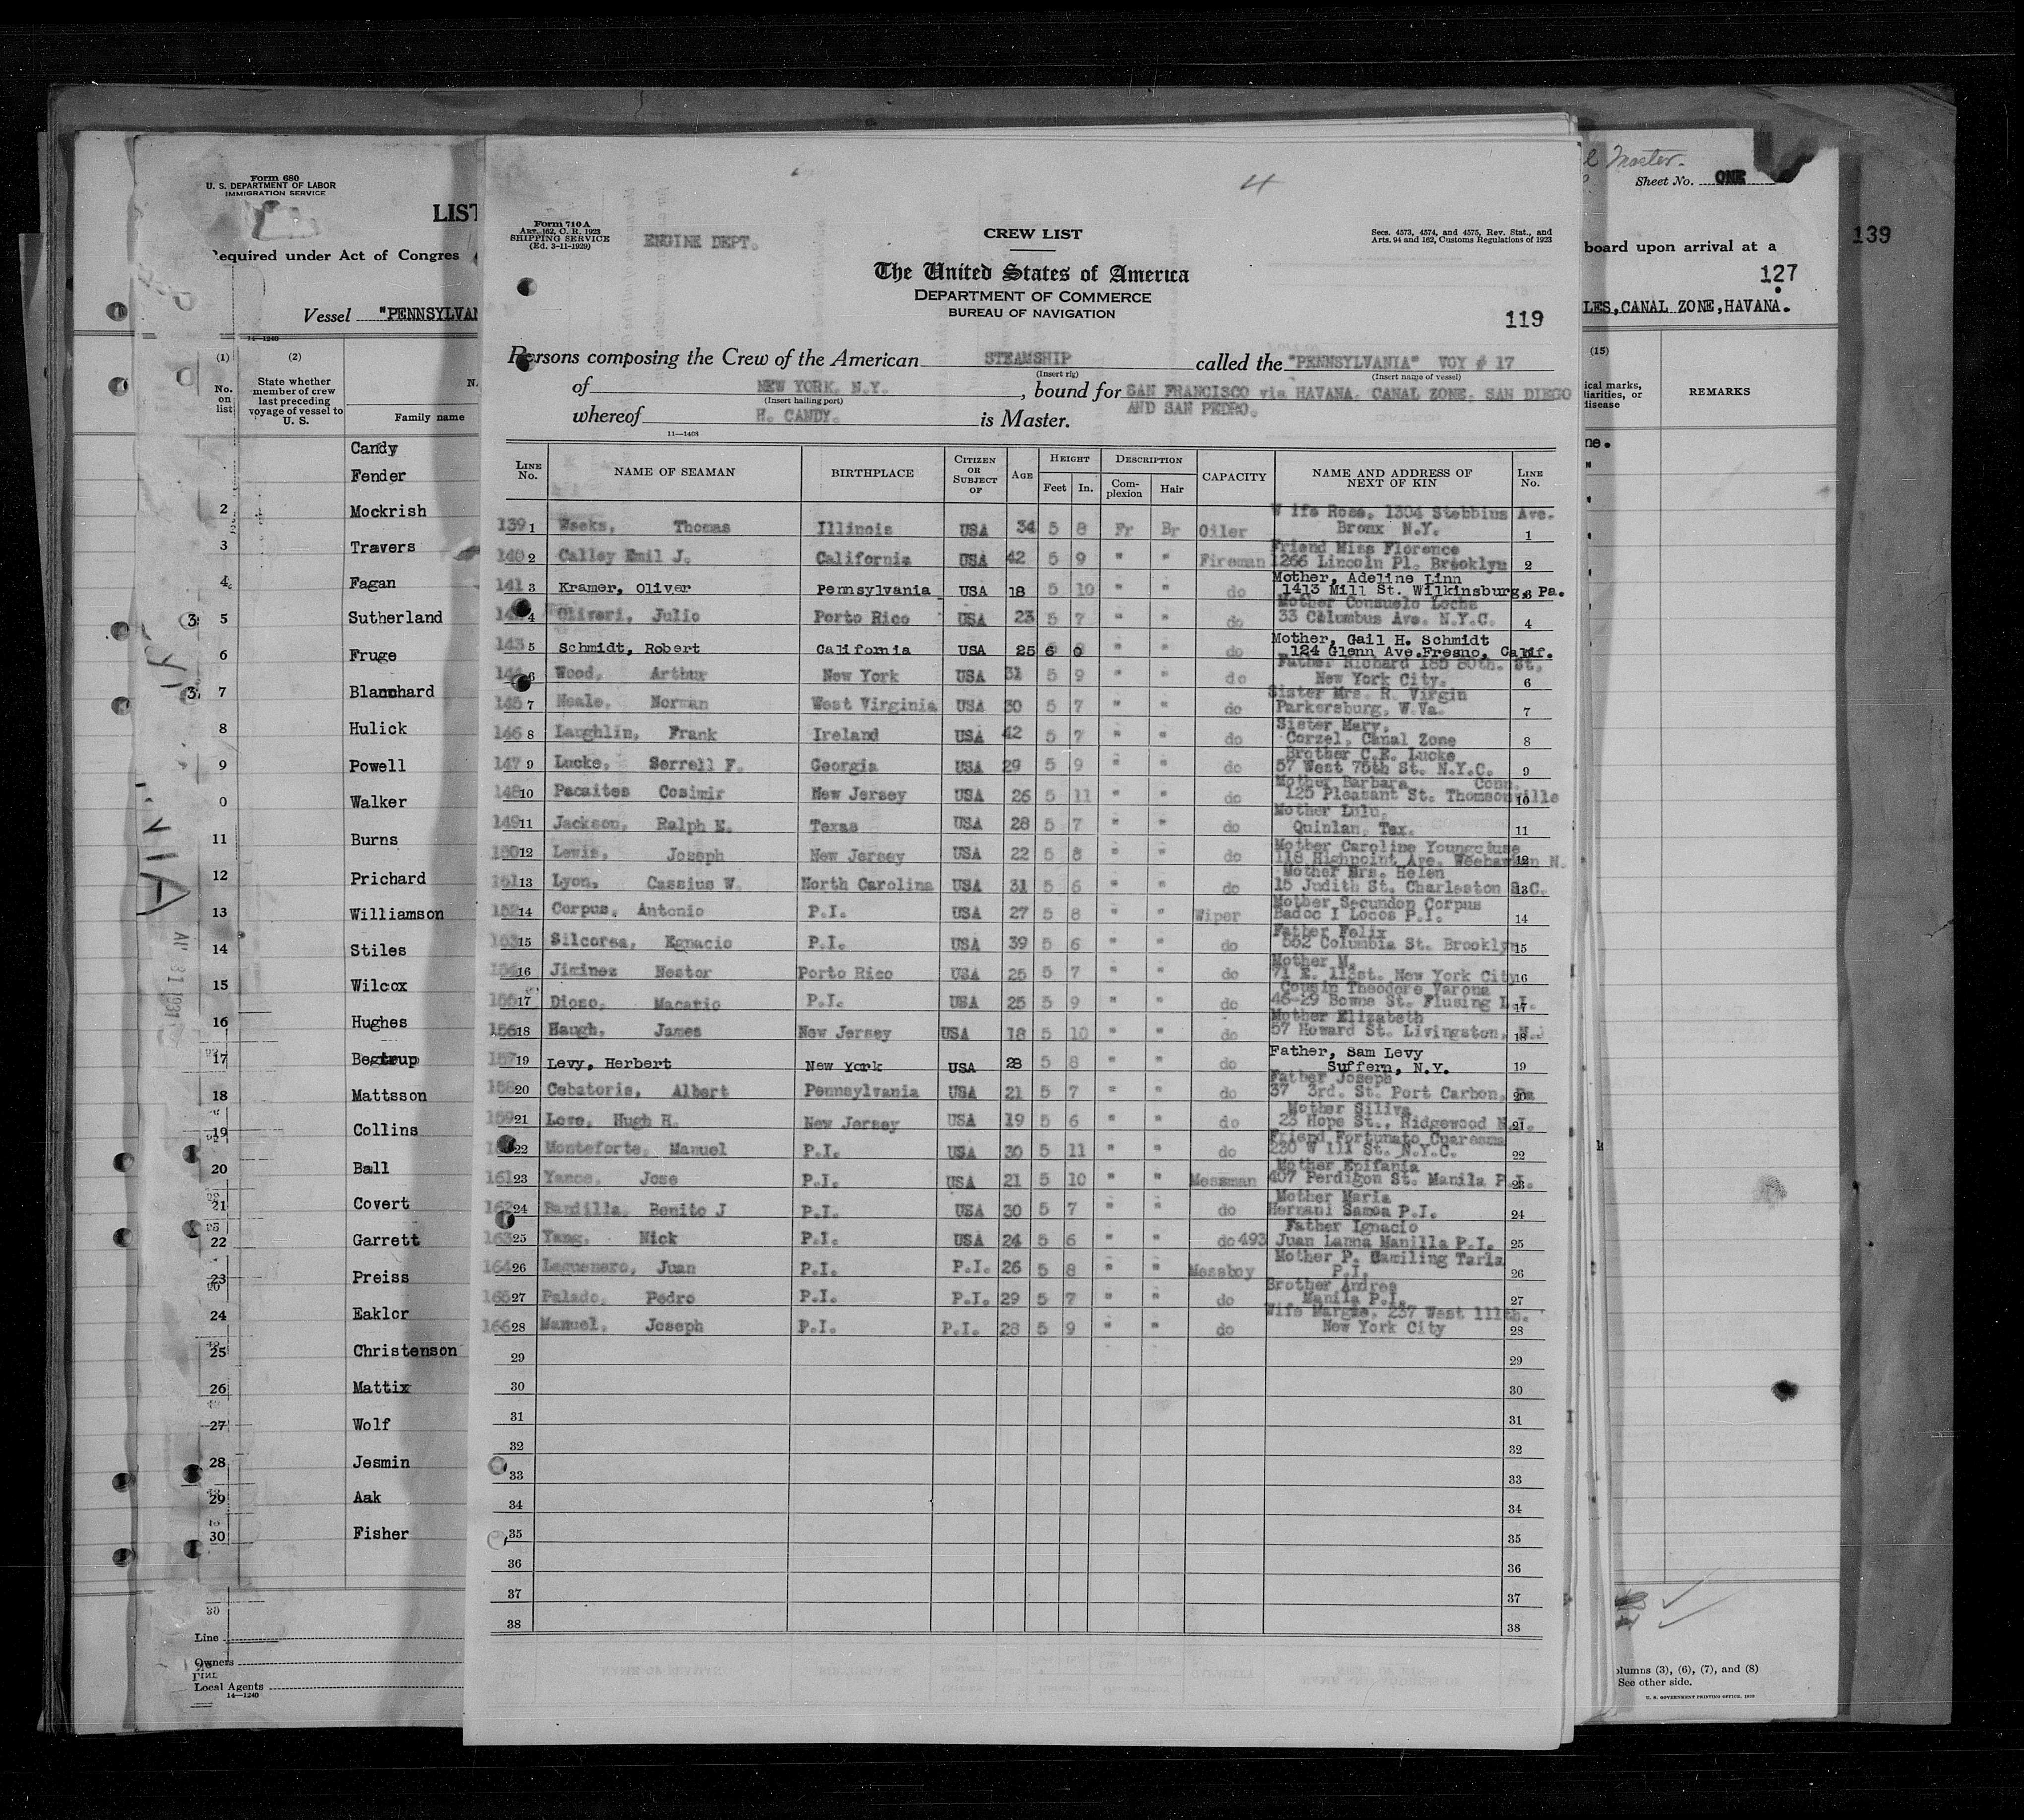 Form 680
U. S. DEPARTMENT OF LABOR
IMMIGRATION SERVICE
LIST
Required under Act of Congres
Vessel "PENNSYLVAN
14—1240
(1) (2)
No. on list
State whether member of crew last preceding voyage of vessel to U. S.
Family name
Candy
Fender
2 Mockrish
3 Travers
4 Fagan
3 5 Sutherland
6 Fruge
3 7 Blanchard
8 Hulick
9 Powell
0 Walker
11 Burns
12 Prichard
13 Williamson
14 Stiles
15 Wilcox
16 Hughes
17 Begtrup
18 Mattsson
19 Collins
20 Ball
21 Covert
22 Garrett
23 Preiss
24 Eaklor
25 Christenson
26 Mattix
27 Wolf
28 Jesmin
29 Aak
30 Fisher
30
Line
Owners
Local Agents
14—1240
4
Form 710 A
ART. 162, C. R. 1923
SHIPPING SERVICE
(Ed. 3-11-1929)
ENGINE DEPT.
CREW LIST
Secs. 4573, 4574, and 4575, Rev. Stat., and
Arts. 94 and 162, Customs Regulations of 1923
The United States of America
DEPARTMENT OF COMMERCE
BUREAU OF NAVIGATION
119
Persons composing the Crew of the American STEAMSHIP called the "PENNSYLVANIA" VOY # 17
(Insert rig) (Insert name of vessel)
of NEW YORK. N.Y. , bound for SAN FRANCISCO via HAVANA. CANAL ZONE. SAN DIEGO
(Insert hailing port) AND SAN PEDRO.
whereof H. CANDY. is Master.
11—1408
LINE No. NAME OF SEAMAN BIRTHPLACE CITIZEN OR SUBJECT OF AGE HEIGHT Feet In. DESCRIPTION Complexion Hair CAPACITY NAME AND ADDRESS OF NEXT OF KIN LINE No.
139 1 Weeks, Thomas Illinois USA 34 5 8 Fr Br Oiler Wife Rose, 1304 Stebbius Ave. Bronx N.Y. 1
140 2 Calley Emil J. California USA 42 5 9 " " Fireman Friend Miss Florence 1266 Lincoln Pl. Brooklyn 2
141 3 Kramer, Oliver Pennsylvania USA 18 5 10 " " do Mother, Adeline Linn 1413 Mill St. Wilkinsburg, Pa.
4 Oliveri, Julio Porto Rico USA 23 5 7 " " do Mother Consuelo 33 Columbus Ave. N.Y.C. 4
143 5 Schmidt, Robert California USA 25 6 0 " " do Mother, Gail H. Schmidt 124 Glenn Ave.Fresno, Calif.
6 Wood, Arthur New York USA 31 5 9 " " do Father Richard 185 80th. St. New York City. 6
145 7 Neale, Norman West Virginia USA 30 5 7 " " do Sister Mrs. R. Virgin Parkersburg, W.Va. 7
146 8 Laughlin, Frank Ireland USA 42 5 7 " " do Sister Mary, Corzel, Canal Zone 8
147 9 Lucke, Serrell F. Georgia USA 29 5 9 " " do Brother C.E. Lucke 57 West 75th St. N.Y.C. 9
148 10 Pacaites Cosimir New Jersey USA 26 5 11 " " do Mother Barbara Conn. 125 Pleasant St. Thomsonville 10
149 11 Jackson, Ralph E. Texas USA 28 5 7 " " do Mother Lulu, Quinlan, Tex. 11
150 12 Lewis, Joseph New Jersey USA 22 5 8 " " do Mother Caroline 118 Highpoint Ave. N. 12
151 13 Lyon, Cassius W. North Carolina USA 31 5 6 " " do Mother Mrs. Helen 15 Judith St. Charleston S.C. 13
152 14 Corpus, Antonio P.I. USA 27 5 8 " " Wiper Mother Secundon Corpus Badoc I Locos P.I. 14
153 15 Silcorsa, Egnacio P.I. USA 39 5 6 " " do Father Felix 552 Columbia St. Brooklyn 15
154 16 Jiminez Nestor Porto Rico USA 25 5 7 " " do Mother M. 71 E. 113st. New York City 16
155 17 Dioso, Macario P.I. USA 25 5 9 " " do Cousin Theodore Varona 46-29 Bowne St. Flusing L.I. 17
156 18 Haugh, James New Jersey USA 18 5 10 " " do Mother Elizabeth 57 Howard St. Livingston, N.J 18
157 19 Levy, Herbert New York USA 28 5 8 " " do Father, Sam Levy Suffern, N.Y. 19
158 20 Cebatoris, Albert Pennsylvania USA 21 5 7 " " do Father Joseph 37 3rd. St. Port Carbon, Pa 20
159 21 Love, Hugh H. New Jersey USA 19 5 6 " " do Mother Siliva 23 Hope St., Ridgewood N.J. 21
22 Monteforte, Manuel P.I. USA 30 5 11 " " do Friend Fortunato Cuaresma 230 W 111 St. N.Y.C. 22
161 23 Yanoe, Jose P.I. USA 21 5 10 " " Messman Mother Epifania 407 Perdigon St. Manila P.I. 23
162 24 Bandilla, Benito J P.I. USA 30 5 7 " " do Mother Maria Hernani Samoa P.I. 24
163 25 Yang, Nick P.I. USA 24 5 6 " " do 493 Father Ignacio Juan Lanna Manilla P.I. 25
164 26 Laguenero, Juan P.I. P.I. 26 5 8 " " Messboy Mother P. Camiling Tarla P.I. 26
165 27 Palado, Pedro P.I. P.I. 29 5 7 " " do Brother Andres Manila P.I. 27
166 28 Manuel, Joseph P.I. P.I. 28 5 9 " " do Wife Margie, 237 West 111th. New York City 28
29 29
30 30
31 31
32 32
33 33
34 34
35 35
36 36
37 37
38 38
Master.
Sheet No. ONE
139
board upon arrival at a
127
LES,CANAL ZONE,HAVANA.
(15)
ical marks,
liarities, or
disease
REMARKS
ne.
olumns (3), (6), (7), and (8)
See other side.
U. S. GOVERNMENT PRINTING OFFICE, 1930